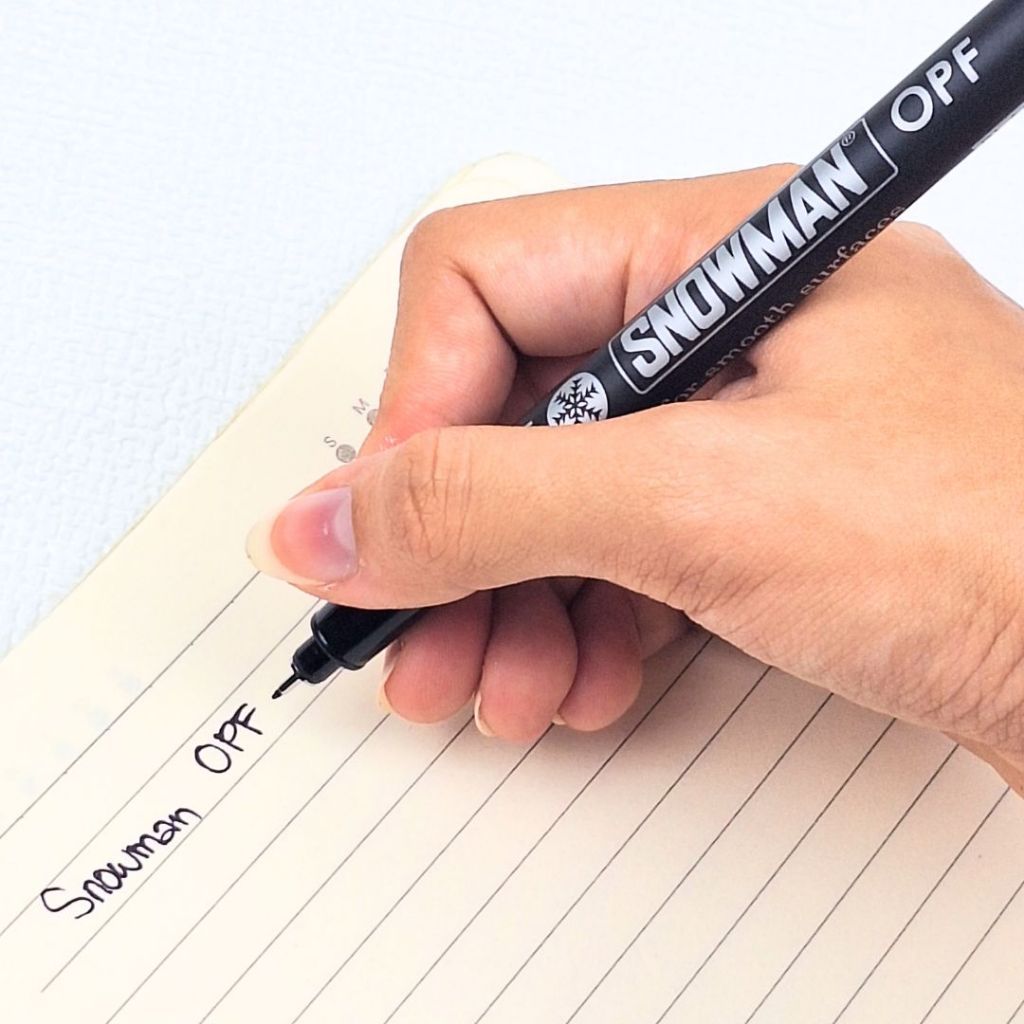 S M
SNOWMAN® OPF
for smooth surfaces
Snowman OPF